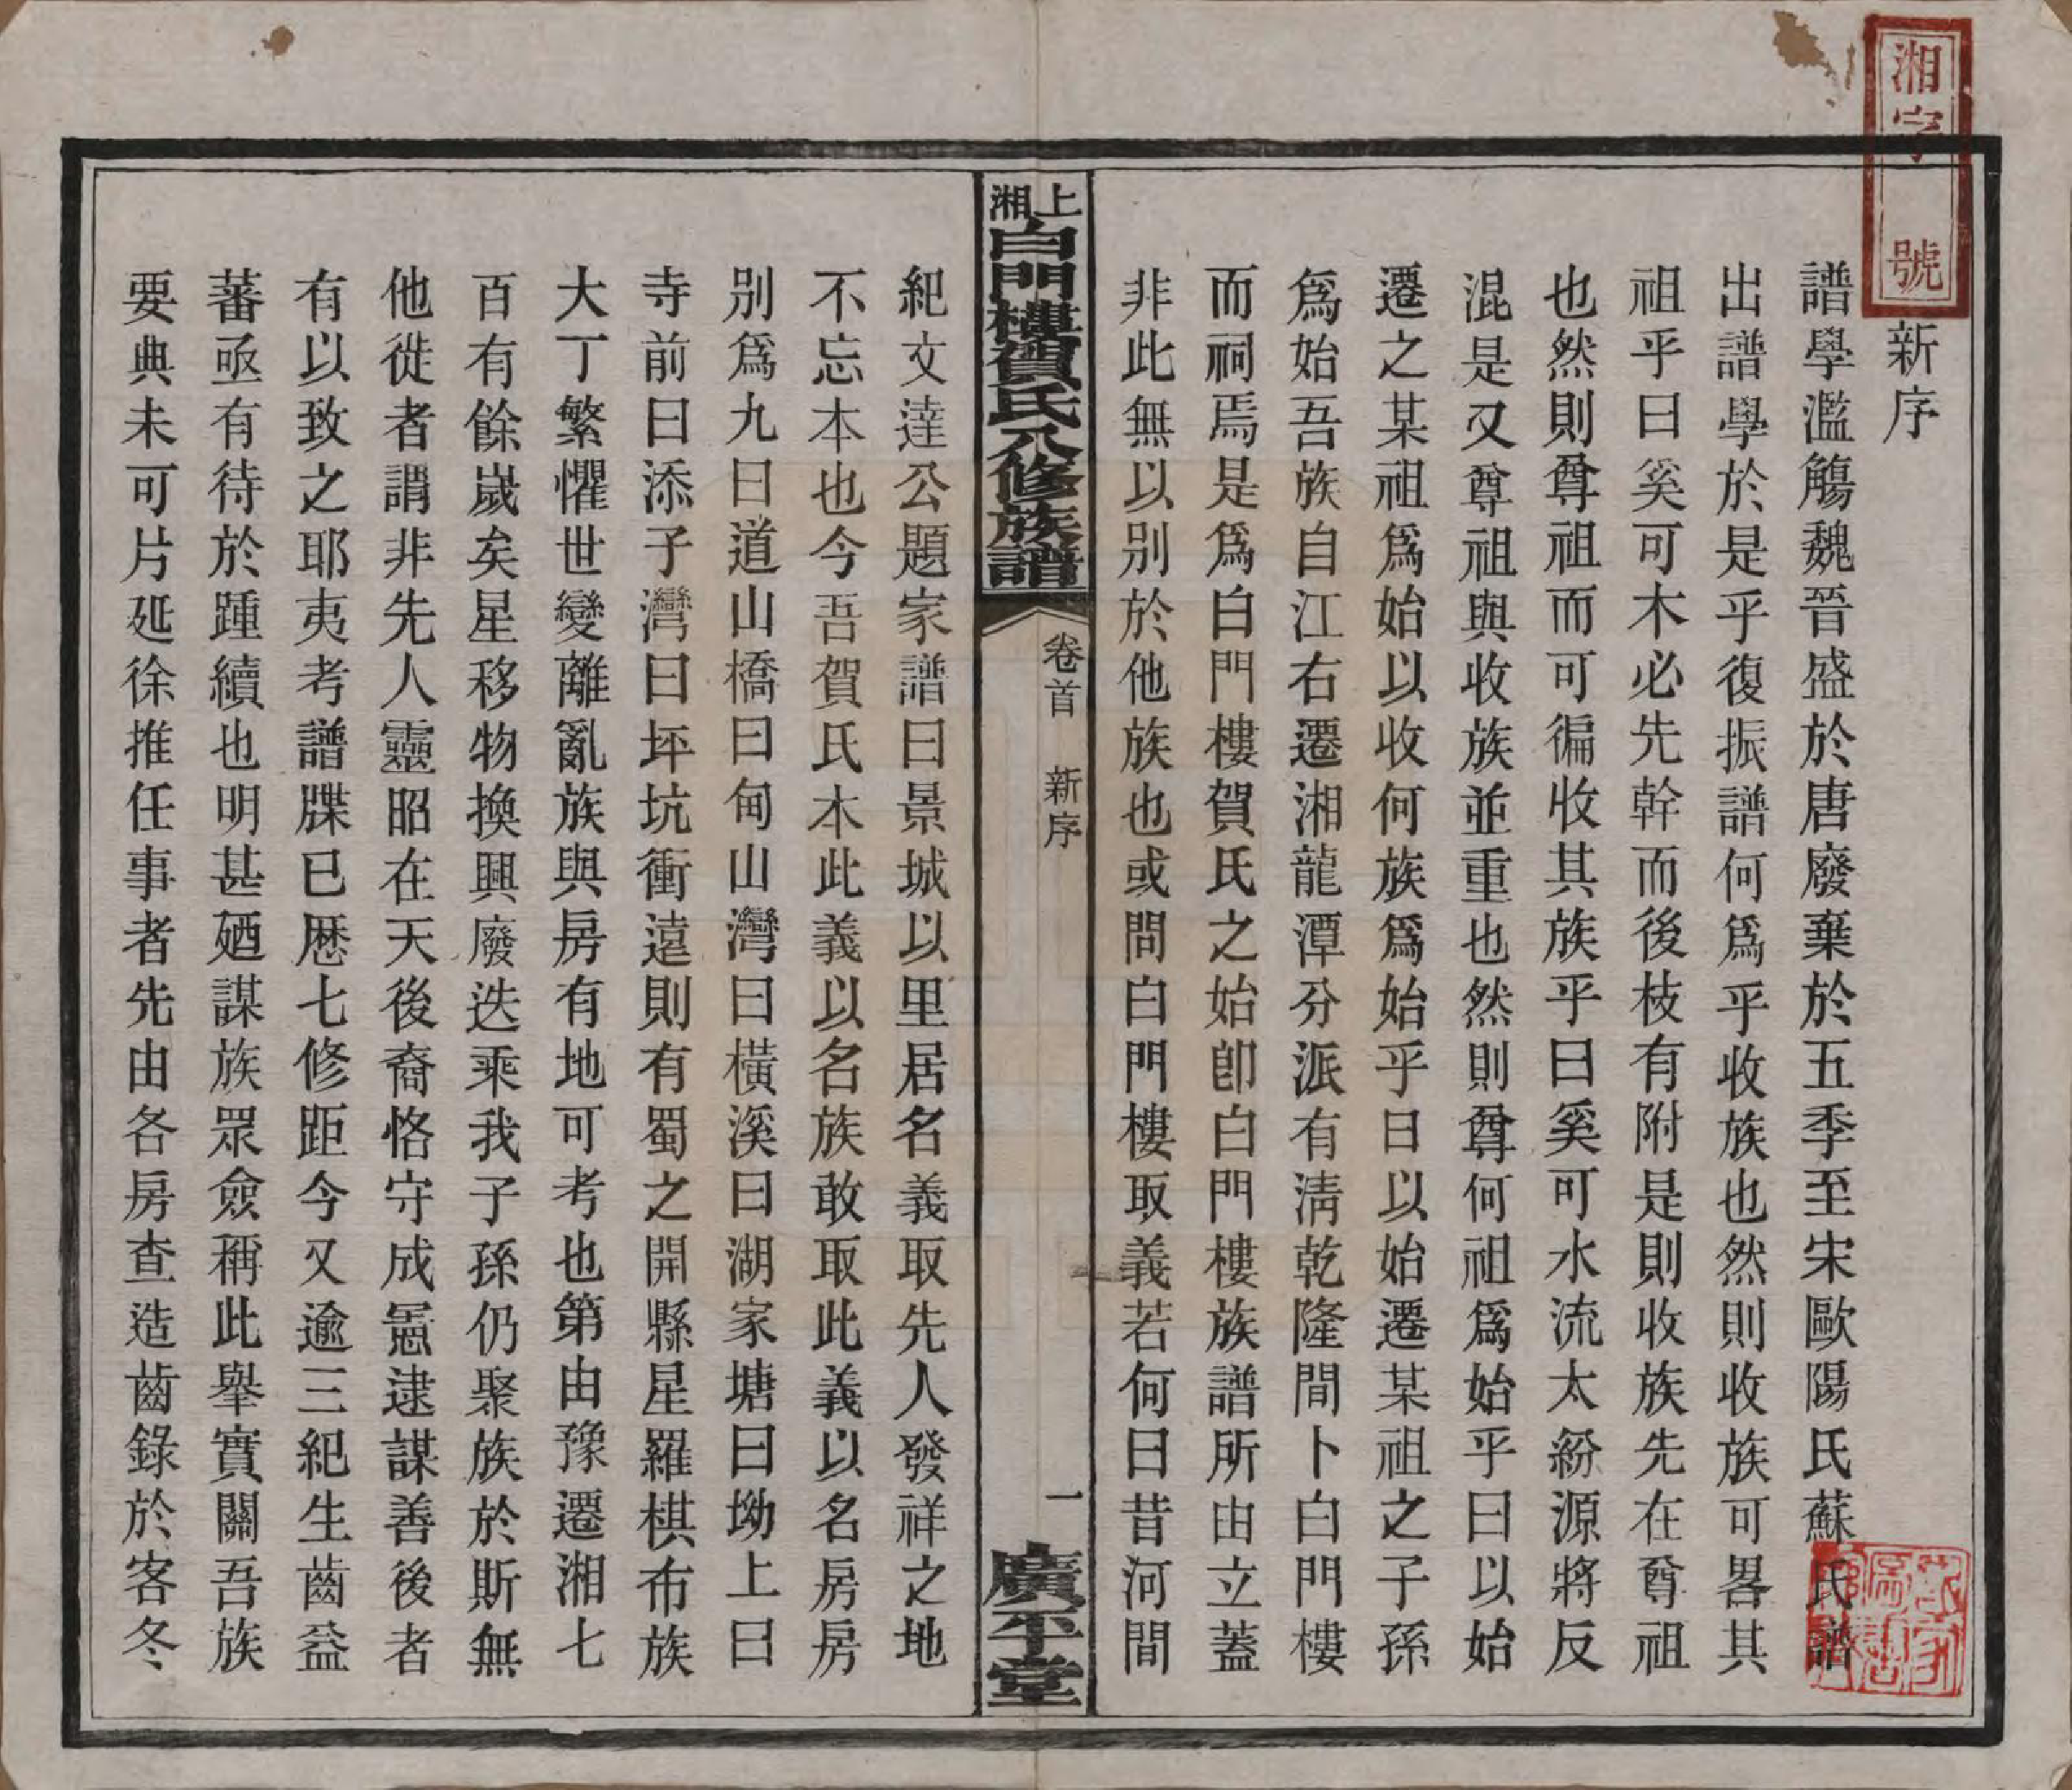 湘字 號
新序
譜學濫觴魏晉盛於唐廢棄於五季至宋歐陽氏蘇氏譜
出譜學於是乎復振譜何爲乎收族也然則收族可畧其
祖乎曰奚可木必先幹而後枝有附是則收族先在尊祖
也然則尊祖而可徧收其族乎曰奚可水流太紛源將反
混是又尊祖與收族並重也然則尊何祖爲始乎曰以始
遷之某祖爲始以收何族爲始乎曰以始遷某祖之子孫
爲始吾族自江右遷湘龍潭分派有淸乾隆間卜白門樓
而祠焉是爲白門樓賀氏之始卽白門樓族譜所由立蓋
非此無以別於他族也或問白門樓取義若何曰昔河間
上湘白門樓賀氏八修族譜
卷首 新序
一
廣平堂
紀文達公題家譜曰景城以里居名義取先人發祥之地
不忘本也今吾賀氏本此義以名族敢取此義以名房房
別爲九曰道山橋曰甸山灣曰橫溪曰湖家塘曰坳上曰
寺前曰添子灣曰坪坑衝遠則有蜀之開縣星羅棋布族
大丁繁懼世變離亂族與房有地可考也第由豫遷湘七
百有餘嵗矣星移物換興廢迭乘我子孫仍聚族於斯無
他徙者謂非先人靈昭在天後裔恪守成憲逮謀善後者
有以致之耶夷考譜牒已歷七修距今又逾三紀生齒益
蕃亟有待於踵續也明甚廼謀族眾僉稱此舉實關吾族
要典未可片延徐推任事者先由各房查造齒錄於客冬